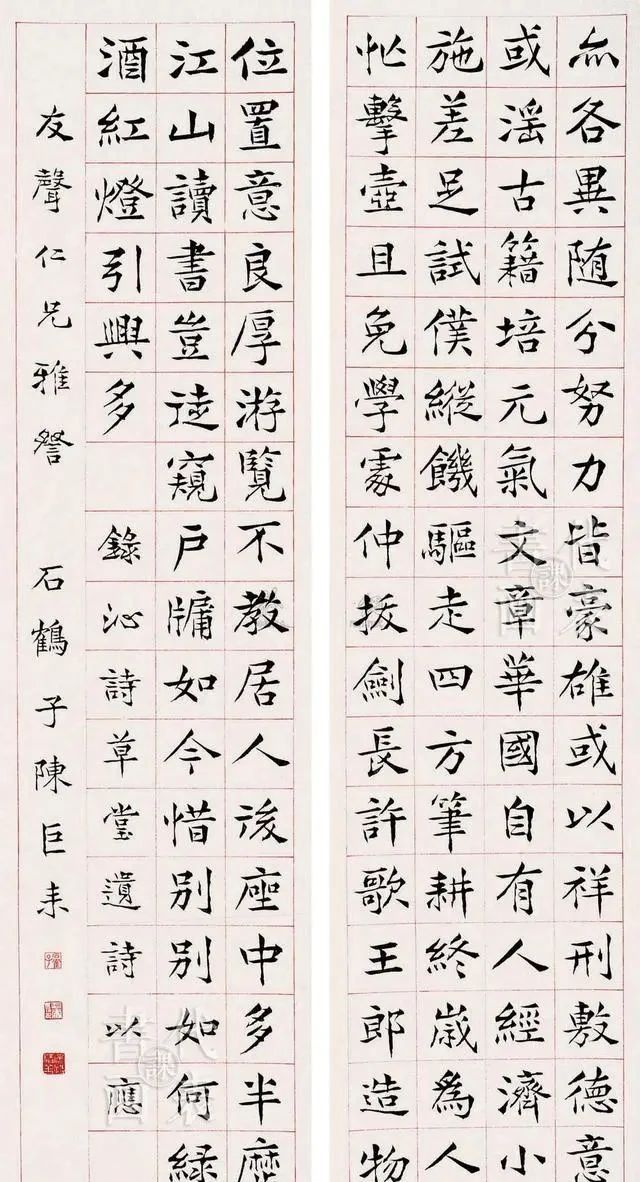 亦各異随分努力皆豪雄或以祥刑敷德意
或滛古籍培元氣文章華國自有人經濟小
施差足試僕縱饑驅走四方筆耕終歲為人
忙擊壺且免學處仲拔劍長許歌王郎造物
位置意良厚游覽不教居人後座中多半歷
江山讀書豈徒窺戶牖如今惜别别如何緑
酒紅燈引興多 錄沁詩草堂遺詩以應
友聲仁兄雅詧 石鶴子陳巨来